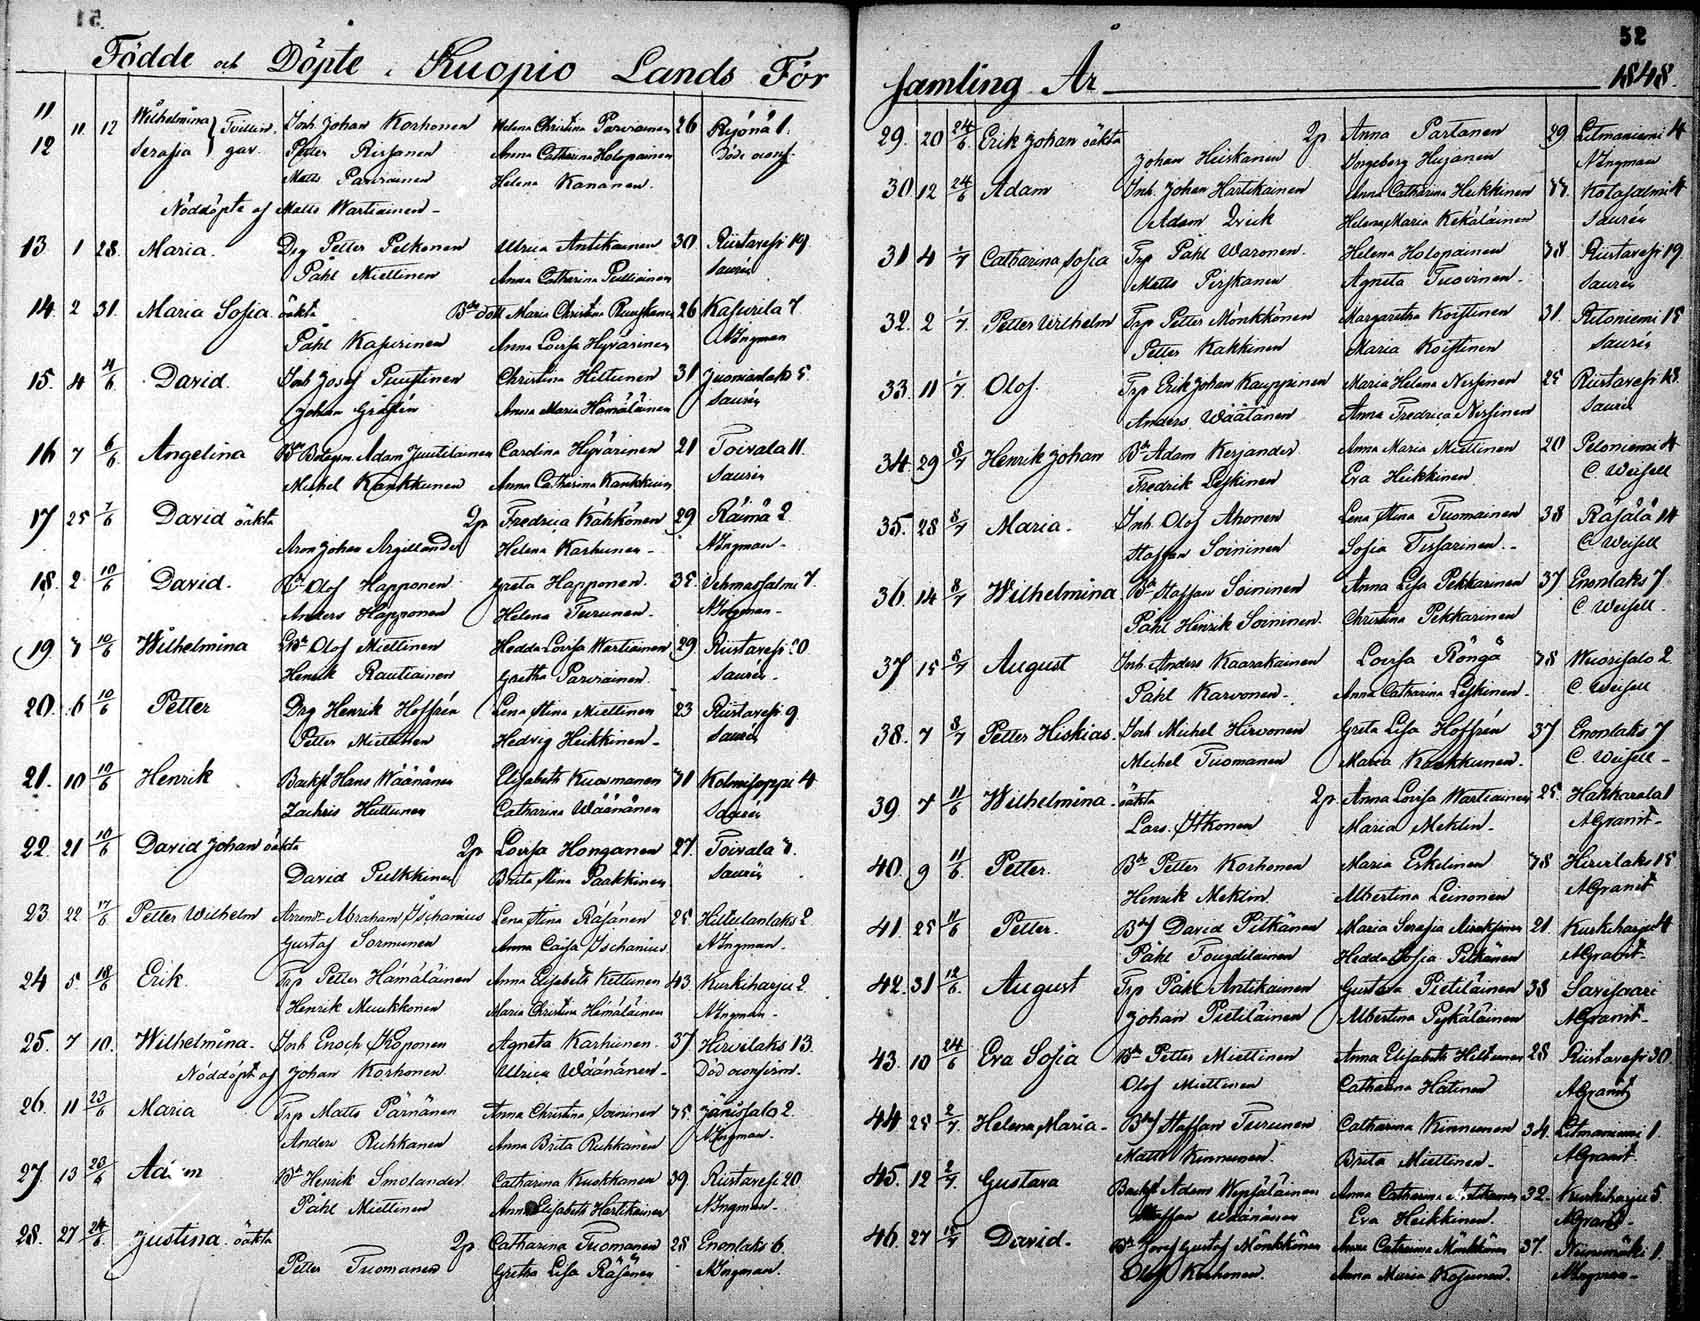 51
Födde och Döpte i Kuopio Lands För
11 11 12 Wilhelmina } Tvillin. Inh. Johan Korhonen Helena Christina Parviainen 26 Ryönä 1.
12 Serafia } gar. Petter Rissanen Anna Catharina Holopainen
Matts Parviainen Helena Kananen.
Nöddöpte af Matts Wartiainen
13 1 28. Maria. Drg Petter Pelkonen Ulrica Antikainen 30 Riistavesi 19.
Påhl Miettinen Anna Catharina
14. 2 31. Maria Sofia oäkta Maria Christina 26 Kasurila 7.
Påhl Kasurinen Anna Lovisa Hyvärinen NIngman
15. 4 4/6 David. Inh Josef Puustinen Christina Hiltunen 31 5.
Johan Anna Maria Hämäläinen Saurén
16 7 6/6 Angelina Adam Juutilainen Carolina Hyvärinen 21 Toivala 11.
Michel Kankkunen Anna Catharina Kankkunen Saurén
17 25 7/6 David oäkta 2p Fredrica Kähkönen 29 Räimä 2.
Aron Johan Argillander Helena Karhunen NIngman
18. 2 10/6 David. Bd Olof Happonen Greta Happonen. 35 Vehmassalmi 7.
Anders Happonen Helena Turunen. NIngman
19. 7 10/6 Wilhelmina Olof Miettinen Hedda Lovisa Wartiainen 29 Riistavesi 20.
Henrik Rautiainen Gretha Parviainen. Saurén
20. 6 10/6 Petter Drg Henrik Hoffrén Lena Stina Miettinen 23 Riistavesi 9.
Petter Miettinen Hedvig Heikkinen Saurén
21. 10 10/6 Henrik Hans Wäänänen Elisabeth Kuosmanen 31 Kolmisoppi 4
Zachris Huttunen Catharina Wäänänen Saurén
22. 21 10/6 David Johan oäkta 2p Lovisa Honganen 27. Toivala 7.
David Pulkkinen Brita Stina Paakkinen Saurén
23. 22 17/6 Petter Wilhelm Abraham Ischanius Lena Stina Räsänen 25 Hiltulanlaks 2.
Gustaf Sormunen Anna Caisa Ischanius NIngman
24 5 18/6 Erik Trp Petter Hämäläinen Anna Elisabeth Kettunen 43 Kurkiharju 2.
Henrik Muukkonen Maria Christina Hämäläinen NIngman
25. 7 10. Wilhelmina. Inh Enoch Roponen Agneta Karhunen. 37 Hirvilaks 13.
Nöddöpt af Johan Korhonen. Ulrica Wäänänen
26. 11 23/6 Maria Trp Matts Pärnänen Anna Christina Soininen 35 Jänissalo 2.
Anders Ruhkanen Anna Brita Ruhkanen NIngman.
27. 13 23/6 Bd Henrik Smolander Catharina Kuokkanen 39. Riistavesi 20.
Påhl Miettinen Anna Elisabeth Hartikainen NIngman
28. 27 24/6 Justina oäkta 2p Catharina Tuomanen 28 Enonlaks 6.
Petter Tuomanen Gretha Lisa Räsänen NIngman.
52
samling År 1848.
29. 20 24/6 Erik Johan oäkta 2p Anna Partanen 29 Litmaniemi 4
Johan Heiskanen Ingeborg Hujanen NIngman
30. 12 24/6 Adam Inh. Johan Hartikainen Anna Catharina Heikkinen 33. Kotasalmi 4
Adam Qvick Helena Maria Kekäläinen Saurén
31 4 1/7 Catharina Sofia Trp Påhl Waronen. Helena Holopainen 38 Riistavesi 19
Matts Pirskanen Agneta Tuovinen Saurén
32. 2 1/7. Petter Wilhelm Trp Petter Mönkkönen Margaretha Koistinen 31. Ritoniemi 15
Petter Kakkinen Maria Koistinen Saurén
33. 11 1/7 Olof. Trp Erik Johan Kauppinen Maria Helena Nissinen 25 Riistavesi 18.
Anders Wäätänen Anna Fredrica Nissinen Saurén
34. 29 8/7 Henrik Johan Bd Adam Kerjander Anna Maria Miettinen 20 Peloniemi 4
Fredrik Leskinen Eva Heikkinen. C Weisell
35. 28 8/7 Maria. Inh. Olof Ahonen Lena Stina Tuomainen 38 Räsälä 14
Staffan Soininen Sofia C Weisell
36. 14 8/7 Wilhelmina Bd Staffan Soininen Anna Lisa Pekkarinen 37 Enonlaks 7
Påhl Henrik Soininen. Christina Pekkarinen C Weisell.
37 15 8/7 August Inh. Anders Kaarakainen Lovisa Röngä 38 Wuorisalo 2.
Påhl Karvonen. Anna Catharina Leskinen C. Weisell
38. 7 8/7 Petter Hiskias. Inh Michel Hirvonen Greta Lisa Hoffrén 37 Enonlaks 7
Michel Tuomanen Maria C. Weisell
39 7 11/6 Wilhelmina. oäkta 2p. Anna Lovisa Wartiainen 25. Hakkarala 1
Lars Itkonen Maria Meklin AGranit
40. 9 11/6. Petter. Bd Petter Korhonen Maria Eskelinen 38 Hirvilaks 15
Henrik Meklin. Albertina Leinonen AGranit
41. 25 11/6 Petter. David Pitkänen Maria Serafia 21. Kurkiharju 4
Påhl Tougdilainen Hedda Sofia Pitkänen AGranit
42. 31 12/6. August Trp Påhl Antikainen Gustava Pietiläinen 38 Savisaari
Johan Pietiläinen Albertina Pyykäläinen AGranit
43. 10 24/6 Eva Sofia Bd Petter Miettinen Anna Elisabeth Hiltunen 28 Riistavesi 30
Olof Miettinen Catharina Hätinen AGranit
44 25 2/7 Helena Maria Staffan Turunen Catharina Kinnunen 34. Litmaniemi 1.
Matts Kinnunen. Brita Miettinen AGranit
45. 12 2/7. Gustava Adam Weps​äläinen Anna Catharina Antikainen 32. Kurkiharju 5.
Staffan Wäänänen Eva Heikkinen. AGranit
46. 27 15/7 David. Bd Josef Gustaf Mönkkönen Anna Catharina Mönkkönen 37. Niinimäki 1.
Olof Korhonen. Anna Maria Kosunen. NIngman